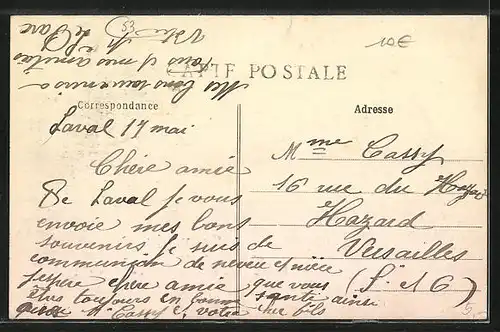 10€
53
CARTE POSTALE
Correspondance
Adresse
Laval 17 mai
Chère amie
De Laval je vous
envoie mes bons
souvenirs je suis de
communion de neveu et nièce
j'espère chère amie que vous
êtes toujours en bonne santé ainsi
que Mr Cassy, votre cher fils
Mes bons souvenirs à
tous et mes amitiés
Mme Cassy
16 rue du Hazard
Hazard
Versailles
(S. et O)